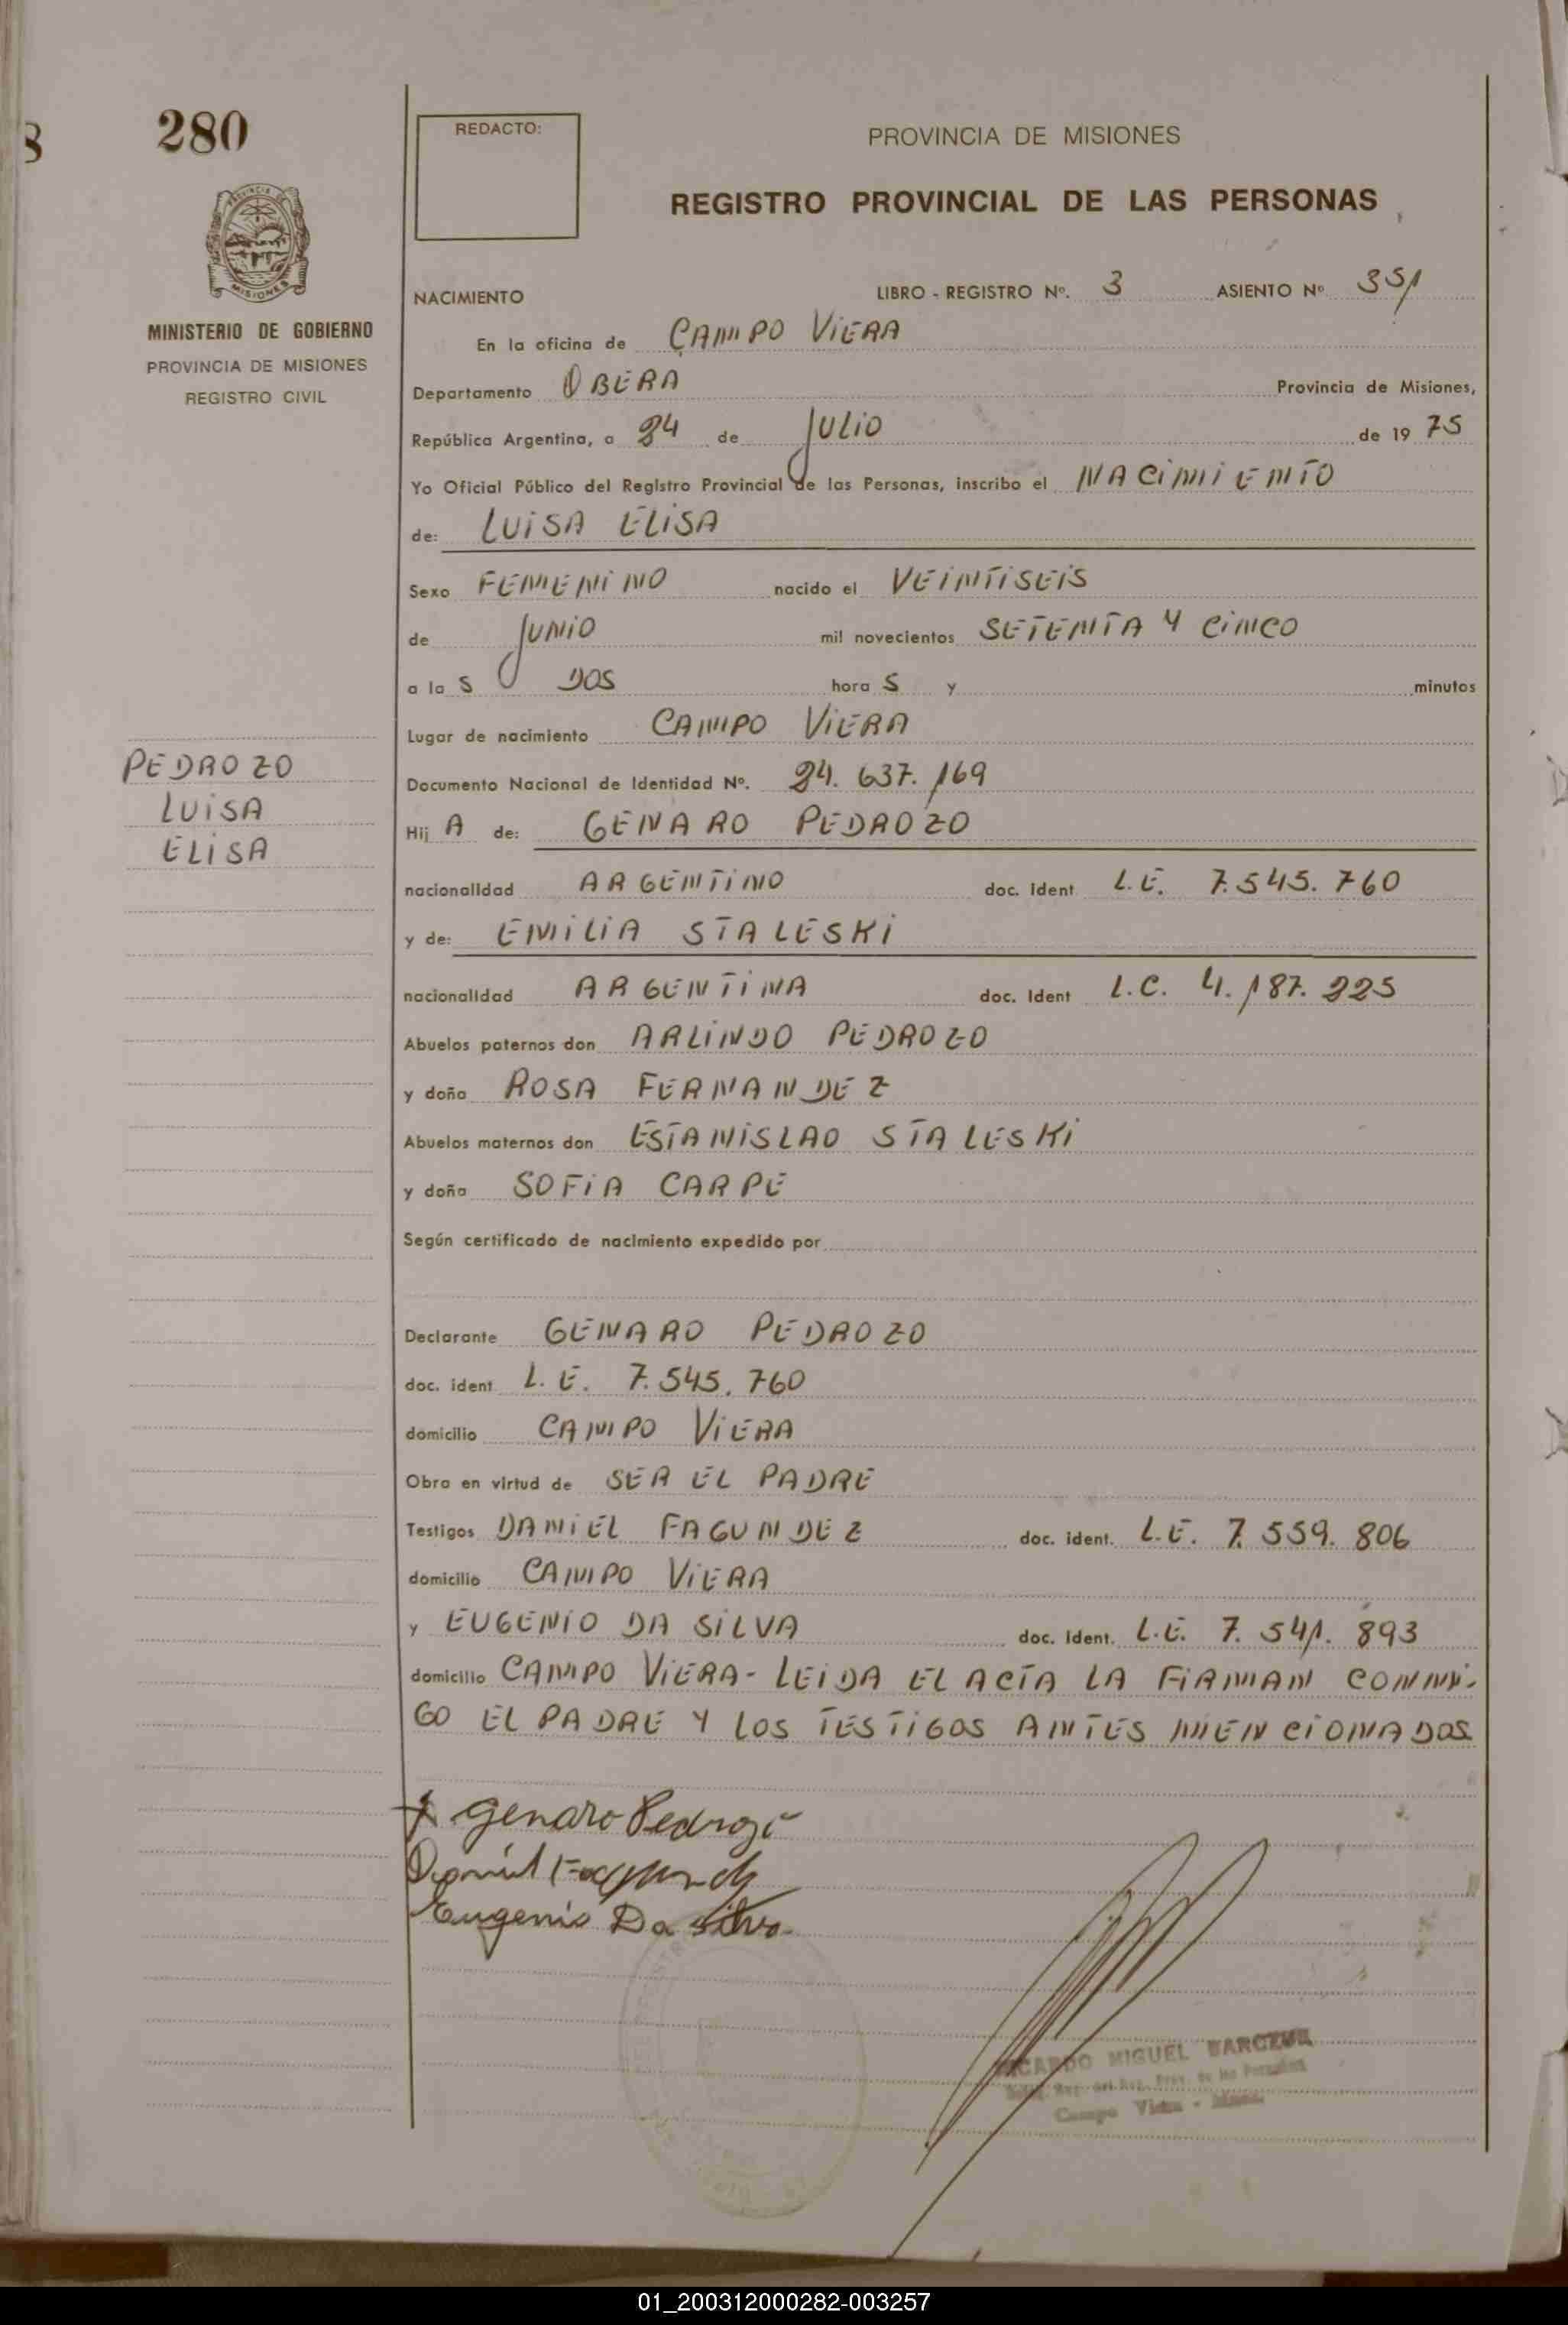 280
REDACTO:
PROVINCIA DE MISIONES
REGISTRO PROVINCIAL DE LAS PERSONAS
MINISTERIO DE GOBIERNO
PROVINCIA DE MISIONES
REGISTRO CIVIL
NACIMIENTO LIBRO - REGISTRO Nº. 3 ASIENTO Nº 351
En la oficina de CAMPO VIERA
Departamento OBERA Provincia de Misiones,
República Argentina, a 24 de JULIO de 19 75
Yo Oficial Público del Registro Provincial de las Personas, inscribo el NACIMIENTO
de: LUISA ELISA
Sexo FEMENINO nacido el VEINTISEIS
de JUNIO mil novecientos SETENTA Y CINCO
a la S DOS hora S y minutos
Lugar de nacimiento CAMPO VIERA
PEDROZO
LUISA
ELISA
Documento Nacional de Identidad Nº. 24.637.169
Hij A de: GENARO PEDROZO
nacionalidad ARGENTINO doc. Ident L.E. 7.545.760
y de: EMILIA STALESKI
nacionalidad ARGENTINA doc. Ident L.C. 4.187.225
Abuelos paternos don ARLINDO PEDROZO
y doña ROSA FERNANDEZ
Abuelos maternos don ESTANISLAO STALESKI
y doña SOFIA CARPE
Según certificado de nacimiento expedido por
Declarante GENARO PEDROZO
doc. ident L.E. 7.545.760
domicilio CAMPO VIERA
Obra en virtud de SER EL PADRE
Testigos DANIEL FAGUNDEZ doc. ident. L.E. 7.559.806
domicilio CAMPO VIERA
y EUGENIO DA SILVA doc. Ident. L.E. 7.541.893
domicilio CAMPO VIERA- LEIDA EL ACTA LA FIRMAN CONMI-
GO EL PADRE Y LOS TESTIGOS ANTES MENCIONADOS
Genaro Pedrozo
Daniel Fagundez
Eugenio Da Silva
MIGUEL
Campo Viera -
01_200312000282-003257